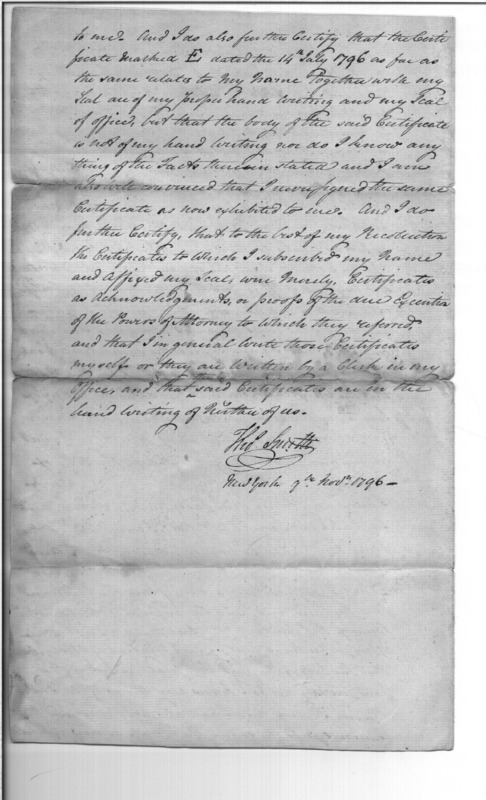 to me. And I do also further Certify that the Certi
ficate marked E, dated the 14th July 1796 as far as
the same relates to my Name together with my
Seal are of my proper hand writing and my Seal
of office, but that the body of the said Certificate
is not of my hand writing nor do I know any
thing of the Facts therein stated and I am
also well convinced that I never signed the same
Certificate as now exhibited to me. And I do
further Certify, that to the best of my Recollection
the Certificates to Which I subscribed my Name
and Affixed my Seal, were Merely, Certificates
as Acknowledgements, or proofs of the due Execution
of the Powers of Attorney to Which they referred,
and that I in general Write those Certificates
myself or they are Written by a Clerk in my
Office, and that said Certificates are in the
hand writing of Neither of us.
Thos. Smith
New York 9th Novr. 1796 —